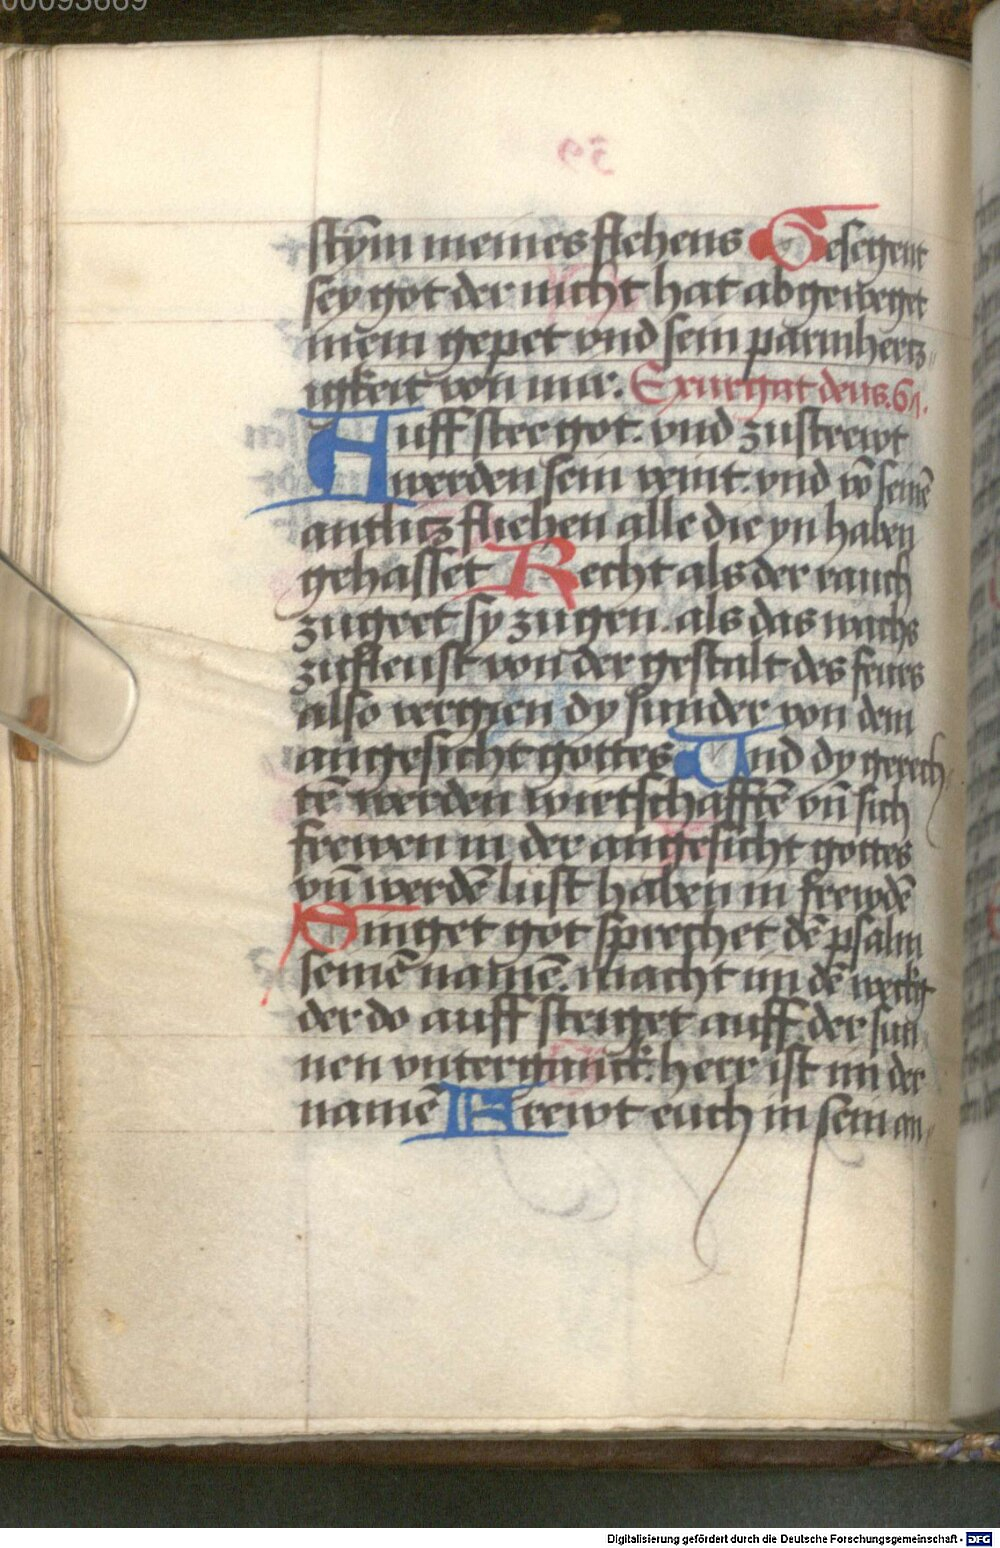 00093669
59
stȳm meines flehens Gesegent
sey got der nicht hat abgeweget
mein gepet vnd sein parmhertz„
igkeit von mir. Exurgat deus. 67.
Auff stee got. vnd zustrewt
werden sein veint. vnd vō seinē
antlitz fliehen alle die yn haben
gehasset Recht als der rauch
zugeet sy zugen. als das wachs
zufleust von der gestalt des feurs
also vergien dy sunder von dem
angesicht gottes Und dy gerech
tē werden wirtschafftē vn̄ sich
frewen in der angesicht gottes
vn̄ werdē lust haben in frewdē
Singet got sprechet dē psalm
seinē namē. macht im dē weckg
der do auff steiget auff der sun
nen vntergannck. herr ist im der
namē Frewt euch in sein an„
Digitalisierung gefördert durch die Deutsche Forschungsgemeinschaft - DFG